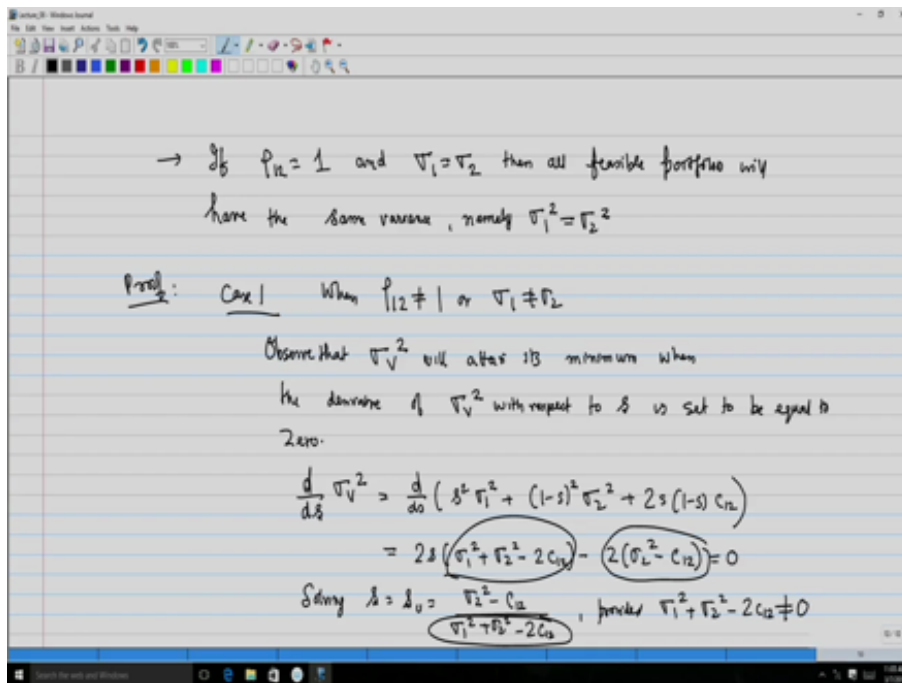 Lecture_05 - Windows Journal
File Edit View Insert Actions Tools Help
→ If ρ₁₂ = 1 and σ₁ = σ₂ then all feasible portfolio will
have the same variance, namely σ₁² = σ₂²
Proof: Case 1 When ρ₁₂ ≠ 1 or σ₁ ≠ σ₂
Observe that σ_V² will attain its minimum when
the derivative of σ_V² with respect to s is set to be equal to
Zero.
d/ds σ_V² = d/ds ( s² σ₁² + (1-s)² σ₂² + 2s (1-s) C₁₂ )
= 2s (σ₁² + σ₂² - 2C₁₂) - 2(σ₂² - C₁₂) = 0
Solving s = s₀ = (σ₂² - C₁₂) / (σ₁² + σ₂² - 2C₁₂) , provided σ₁² + σ₂² - 2C₁₂ ≠ 0
Search the web and Windows